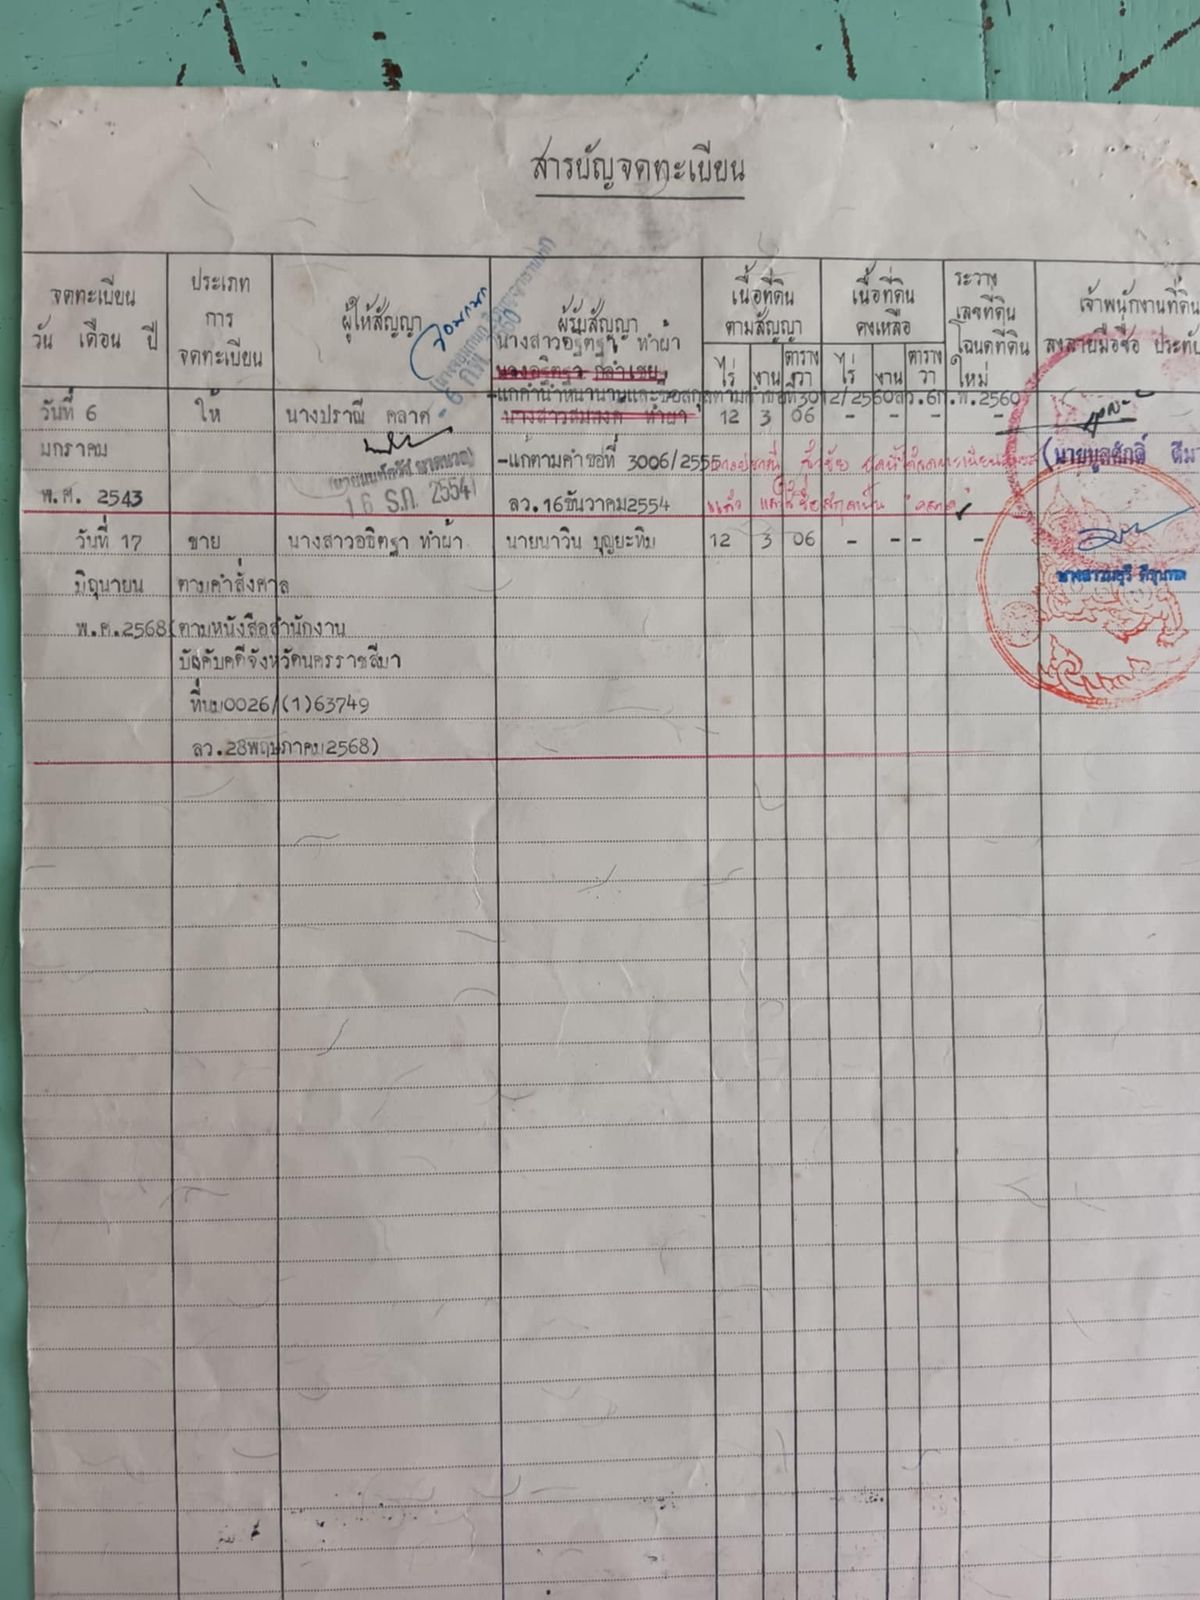 สารบัญจดทะเบียน
จดทะเบียน
วัน เดือน ปี
ประเภท
การ
จดทะเบียน
ผู้ให้สัญญา
ผู้รับสัญญา
เนื้อที่ดิน
ตามสัญญา
ไร่ งาน ตารางวา
เนื้อที่ดิน
คงเหลือ
ไร่ งาน ตารางวา
ระวาง
เลขที่ดิน
โฉนดที่ดิน
ใหม่
เจ้าพนักงานที่ดิน
ลงลายมือชื่อ ประทับ
นางสาวอธิตฐา ทำผ้า
วันที่ 6 ให้ นางปราณี คลาศ นางสาวสมสงค์ ทำผ้า 12 3 06 - - - -
มกราคม
พ.ศ. 2543
-แก้ตามคำขอที่ 3006/2555
ลว.16ธันวาคม2554
16 ธ.ค. 2554
- 6 ก.พ. 2560
วันที่ 17 ขาย นางสาวอธิตฐา ทำผ้า นายนาวิน บุญยะทิม 12 3 06 - - - -
มิถุนายน ตามคำสั่งศาล
พ.ศ.2568 (ตามหนังสือสำนักงาน
บังคับคดีจังหวัดนครราชสีมา
ที่นม0026/(1)63749
ลว.28พฤษภาคม2568)